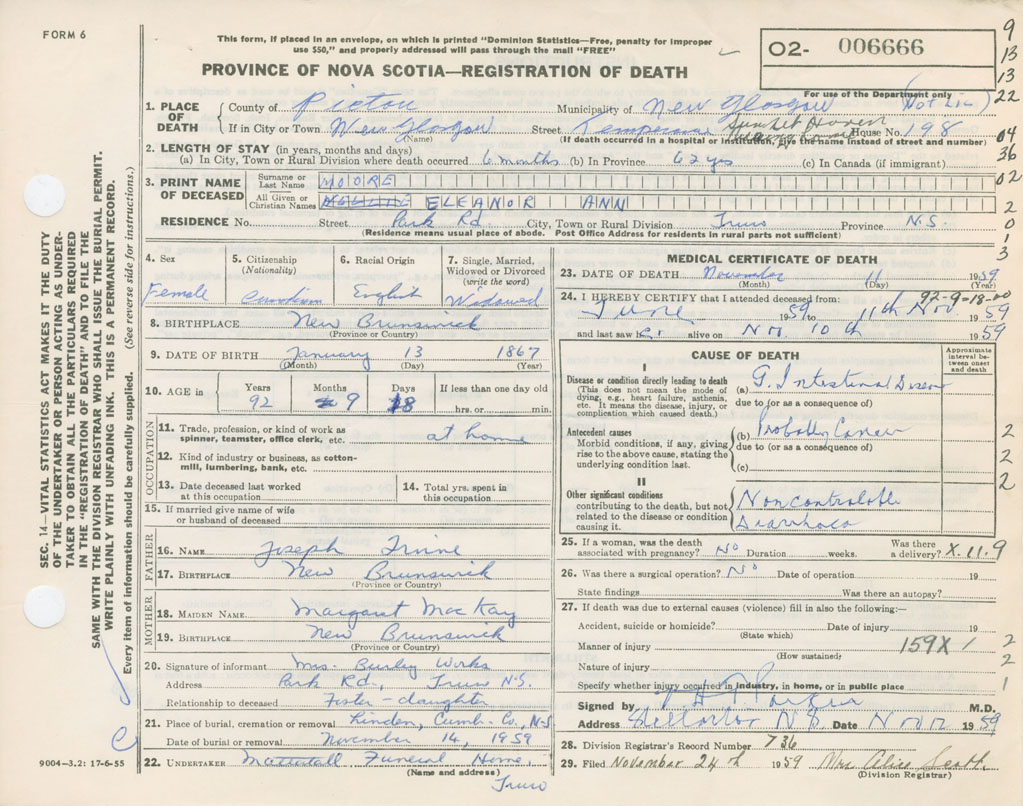 FORM 6
This form, if placed in an envelope, on which is printed "Dominion Statistics—Free, penalty for improper
use $50," and properly addressed will pass through the mail "FREE"
O2- 006666
For use of the Department only
PROVINCE OF NOVA SCOTIA—REGISTRATION OF DEATH
9
13
13
22
04
36
02
2
0
1
3
1. PLACE OF DEATH County of Pictou Municipality of New Glasgow (Not Lim)
If in City or Town New Glasgow Street Temperance Sunset Haven House No. 198
(Name) (If death occurred in a hospital or institution, give the name instead of street and number)
2. LENGTH OF STAY (in years, months and days)
(a) In City, Town or Rural Division where death occurred 6 months (b) In Province 62 yrs (c) In Canada (if immigrant)
3. PRINT NAME OF DECEASED Surname or Last Name MOORE
All Given or Christian Names ELEANOR ANN
RESIDENCE No. Street Park Rd City, Town or Rural Division Truro Province N.S.
(Residence means usual place of abode. Post Office Address for residents in rural parts not sufficient)
4. Sex Female
5. Citizenship (Nationality) Canadian
6. Racial Origin English
7. Single, Married, Widowed or Divorced (write the word) Widowed
8. BIRTHPLACE New Brunswick
(Province or Country)
9. DATE OF BIRTH January 13 1867
(Month) (Day) (Year)
10. AGE in Years 92 Months 9 Days 18 If less than one day old hrs. or min.
OCCUPATION
11. Trade, profession, or kind of work as spinner, teamster, office clerk, etc. at home
12. Kind of industry or business, as cotton-mill, lumbering, bank, etc.
13. Date deceased last worked at this occupation
14. Total yrs. spent in this occupation
15. If married give name of wife or husband of deceased
FATHER
16. NAME Joseph Irvine
17. BIRTHPLACE New Brunswick
(Province or Country)
MOTHER
18. MAIDEN NAME Margaret MacKay
19. BIRTHPLACE New Brunswick
(Province or Country)
20. Signature of informant Mrs. Burley Works
Address Park Rd., Truro N.S.
Relationship to deceased Foster-daughter
21. Place of burial, cremation or removal Linden, Cumb. Co., N.S
Date of burial or removal November 14, 1959
22. UNDERTAKER Mattatall Funeral Home,
(Name and address) Truro
MEDICAL CERTIFICATE OF DEATH
23. DATE OF DEATH November 11 1959
(Month) (Day) (Year)
92-9-18-00
24. I HEREBY CERTIFY that I attended deceased from:
June 1959 to 11th Nov. 1959
and last saw her alive on Nov. 10th 1959
CAUSE OF DEATH
Approximate interval between onset and death
I
Disease or condition directly leading to death
(This does not mean the mode of dying, e.g., heart failure, asthenia, etc. It means the disease, injury, or complication which caused death.)
(a) G. Intestinal Disease
due to (or as a consequence of)
Antecedent causes
Morbid conditions, if any, giving rise to the above cause, stating the underlying condition last.
(b) Probably Cancer
due to (or as a consequence of)
(c)
2
2
2
II
Other significant conditions
contributing to the death, but not related to the disease or condition causing it.
Noncontrolable
Diarrhoea
25. If a woman, was the death associated with pregnancy? No Duration weeks. Was there a delivery? X.11.9
26. Was there a surgical operation? No Date of operation 19
State findings Was there an autopsy?
27. If death was due to external causes (violence) fill in also the following:—
Accident, suicide or homicide? Date of injury 19
(State which)
Manner of injury 159X 1
(How sustained)
Nature of injury
2
2
1
Specify whether injury occurred in industry, in home, or in public place
Signed by M.D.
Address Stellarton N.S. Date Nov 12 1959
28. Division Registrar's Record Number 736
29. Filed November 24th 1959 Mrs Alice Scott
(Division Registrar)
SEC. 14—VITAL STATISTICS ACT MAKES IT THE DUTY
OF THE UNDERTAKER OR PERSON ACTING AS UNDER-
TAKER TO OBTAIN ALL THE PARTICULARS REQUIRED
IN THE "REGISTRATION OF DEATH" AND FILE THE
SAME WITH THE DIVISION REGISTRAR WHO SHALL ISSUE THE BURIAL PERMIT.
WRITE PLAINLY WITH UNFADING INK. THIS IS A PERMANENT RECORD.
Every item of information should be carefully supplied. (See reverse side for instructions.)
9004-3.2: 17-6-55